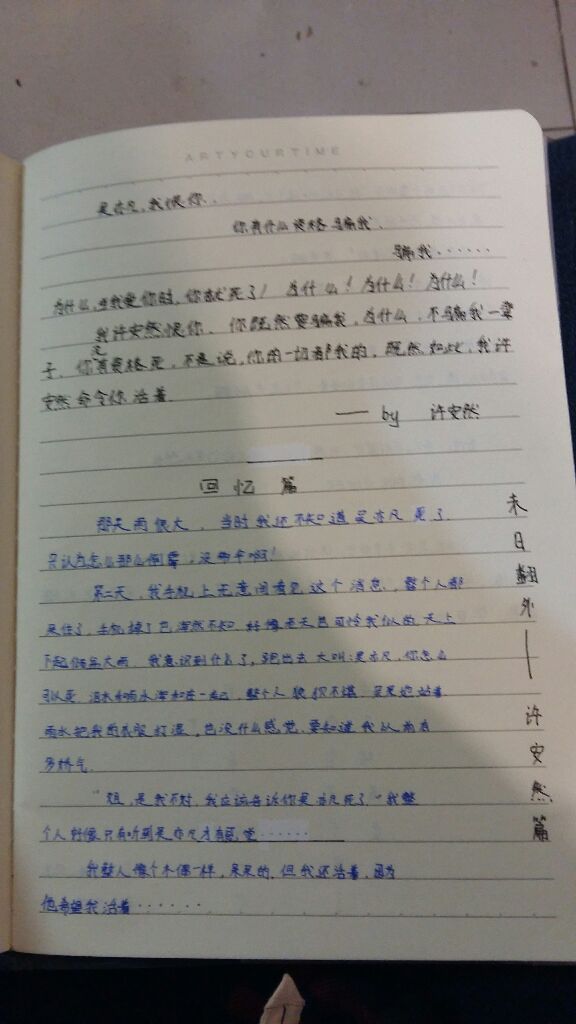 ARTYOURTIME
吴亦凡，我恨你..
你有什么资格骗我.
骗我......
为什么，当我爱你时，你就死了！为什么！为什么！为什么！
我许安然恨你．你既然要骗我，为什么．不骗我一辈
子．你有资格死，不是说，你的一切都我的，既然如此，我许
安然命令你活着．
—— by 许安然
回忆篇
那天雨很大．当时我还不知道吴亦凡死了．
只认为怎么那么倒霉，没带伞啊！
第二天，我手机上无意间看见这个消息．整个人都
呆住了，手机掉了也浑然不知．好像老天是可怜我似的天上
下起倾盆大雨．我意识到什么了，跑出去大叫：吴亦凡．你怎么
可以死．泪水和雨水混在一起，整个人狼狈不堪．呆呆地站着
雨水把我的衣服打湿．也没什么感觉．要知道我从前有
多娇气．
“姐，是我不对．我应该告诉你吴亦凡死了．”我整
个人好像只有听到吴亦凡才有感觉......
我整人像个木偶一样，呆呆的．但我还活着．因为
他希望我活着......
末日番外——许安然篇